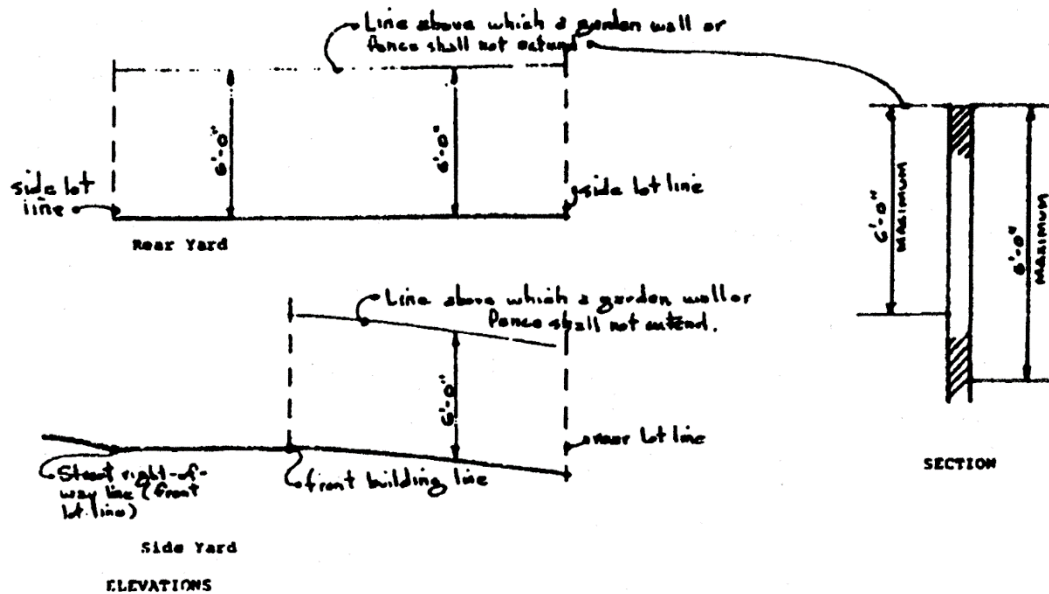 Line above which a garden wall or
fence shall not extend
6'-0"
6'-0"
side lot
line
side lot line
Rear Yard
Line above which a garden wall or
fence shall not extend.
6'-0"
rear lot line
Street right-of-
way line (front
lot line)
front building line
Side Yard
ELEVATIONS
6'-0"
MAXIMUM
6'-0"
MAXIMUM
SECTION